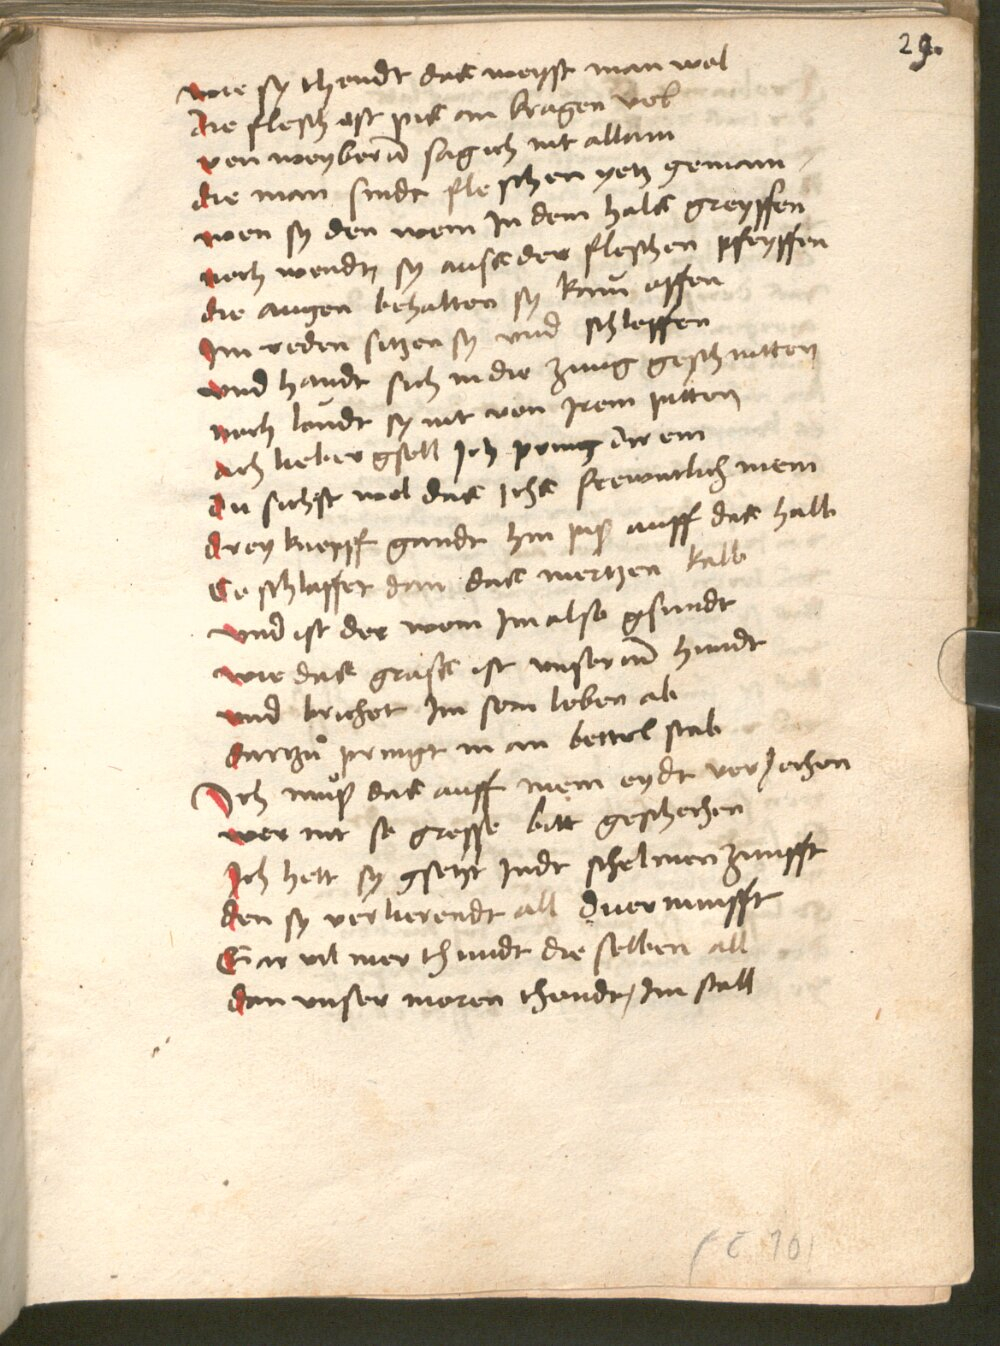 29.
wie sy thendt das weyst man wol
die flesch ist pis an kragen vol
von weyberm̄ sag ich nit allain
die man sindt fleschen yetz gemain
wen sy den wein In dem hals greyffen
noch wendtz sy auss der fleschen pfeyffen
die augen behalten sy kaum offen
Im reden sitzen sy vnd schloffen
vnd handt sich in die zung geschnitten
noch landt sy nit von Irem pitten
ach lieber gsell Ich pring dir ein
du sichst wol das Ichs frewntlich mein
drey knepff gandt hin piß auff das halb
Er schlaffet dan das mertzen kalb
vnd ist der wein Im also gsundt
wie das grass ist vnserm̄ hundt
vnd brichet Im sein leben ab
darzů pringt in an bettel stab
Ich můß das auff mein eydt verJechen
wer nit so grosse bitt geschechen
Ich hett sy gsetzt Indt schelmen zunfft
den sy verlierendt all vernunfft
Gar vil mer thundt die selben all
dan vnser moren thendt / Im stall